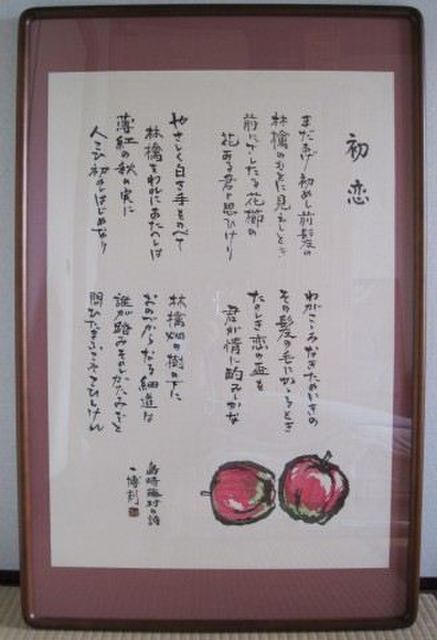 初恋
まだあげ初めし前髪の
林檎のもとに見えしとき
前にさしたる花櫛の
花ある君と思ひけり
やさしく白き手をのべて
林檎をわれにあたへしは
薄紅の秋の実に
人こひ初めしはじめなり
わがこゝろなきためいきの
その髪の毛にかゝるとき
たのしき恋の盃を
君が情に酌みしかな
林檎畑の樹の下に
おのづからなる細道は
誰が踏みそめしかたみぞと
問ひたまふこそこひしけれ
島崎藤村の詩
一博刻